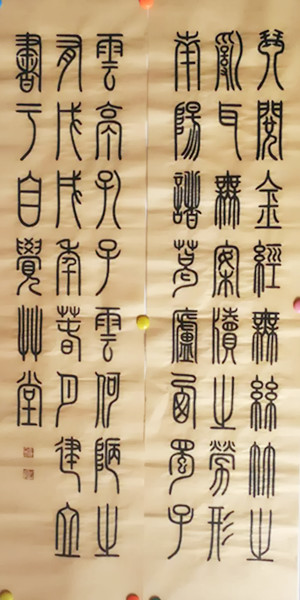 琴閱金經無絲竹之
亂耳無案牘之勞形
南陽諸葛廬西蜀子
雲亭孔子雲何陋之
有戊戌年春月建立
書于自覺艸堂